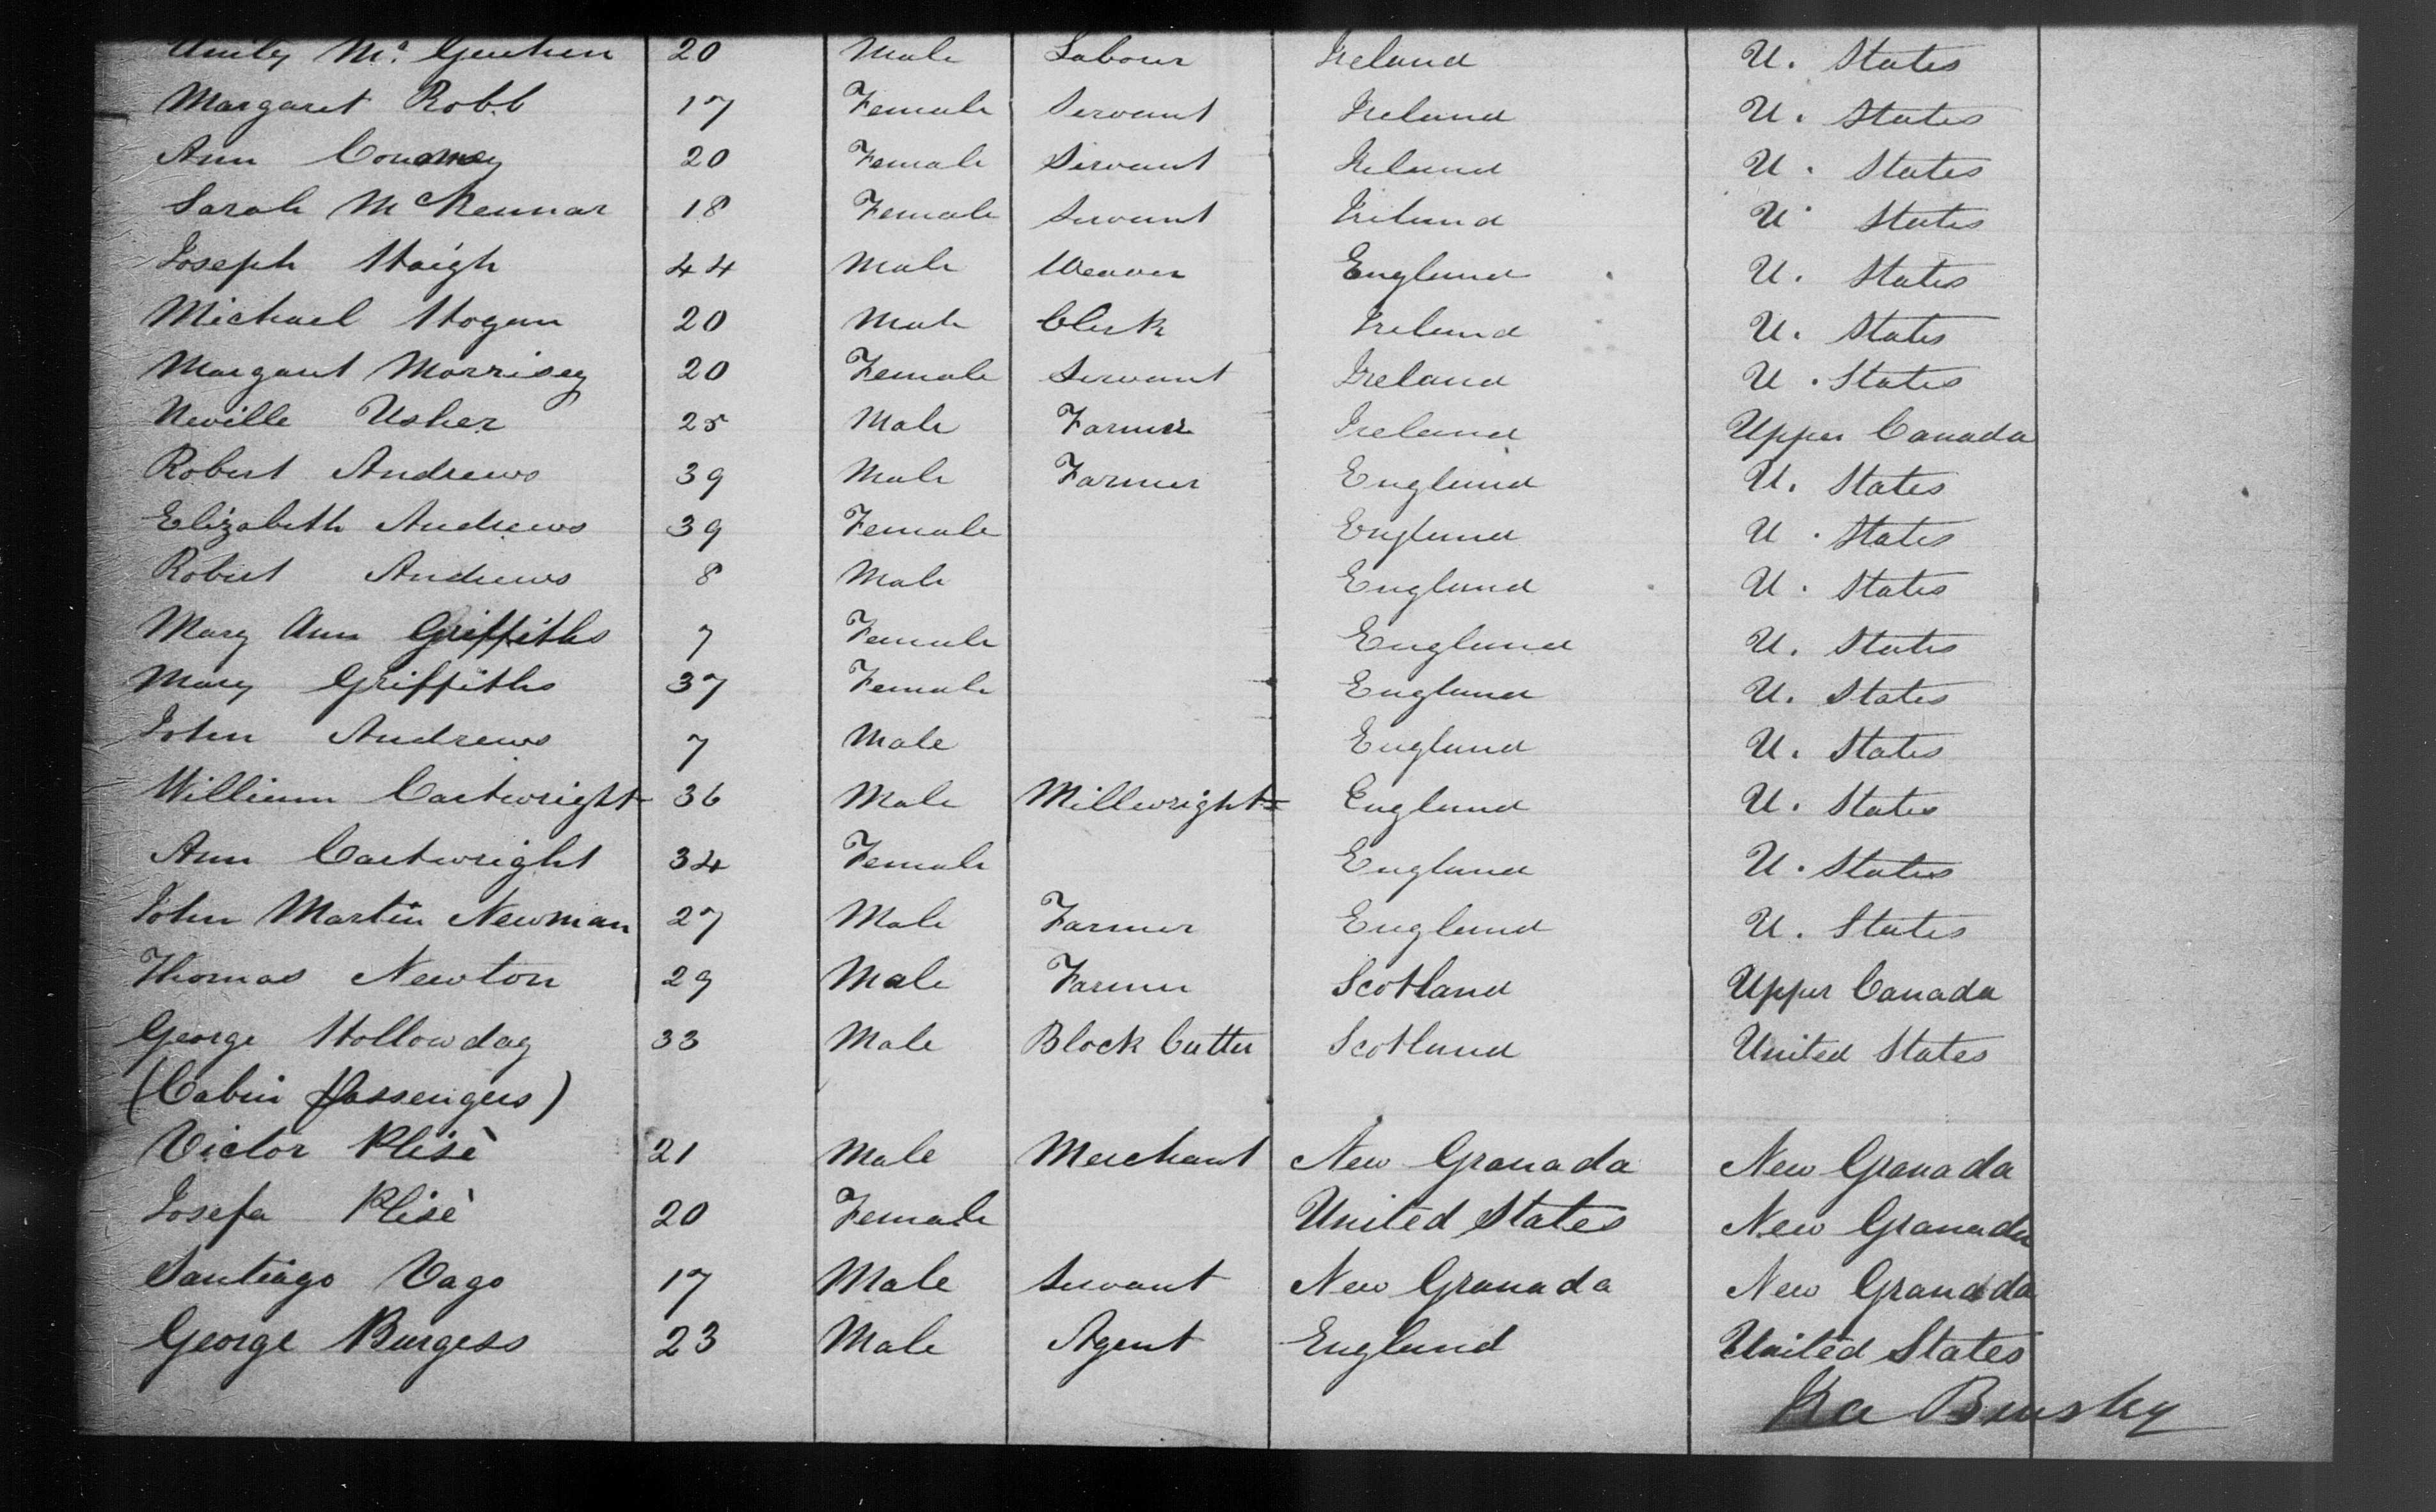 Mc 20 Male Labour Ireland U. States
Margaret Robb 17 Female Servant Ireland U. States
Ann 20 Female Servant Ireland U. States
Sarah McKennar 18 Female Servant Ireland U. States
Joseph Haigh 44 Male Weaver England U. States
Michael Hogan 20 Male Clerk Ireland U. States
Margaret Morrisey 20 Female Servant Ireland U. States
Neville Usher 25 Male Farmer Ireland Upper Canada
Robert Andrews 39 Male Farmer England U. States
Elizabeth Andrews 39 Female England U. States
Robert Andrews 8 Male England U. States
Mary Ann Griffiths 7 Female England U. States
Mary Griffiths 37 Female England U. States
John Andrews 7 Male England U. States
William Cartwright 36 Male Millwright England U. States
Ann Cartwright 34 Female England U. States
John Martin Newman 27 Male Farmer England U. States
Thomas Newton 29 Male Farmer Scotland Upper Canada
George Hollowday 33 Male Block Cutter Scotland United States
(Cabin Passengers)
Victor Plisè 21 Male Merchant New Granada New Granada
Josefa Plisè 20 Female United States New Granada
Santiago Vago 17 Male Servant New Granada New Granada
George Burgess 23 Male Agent England United States
Ira Bursley